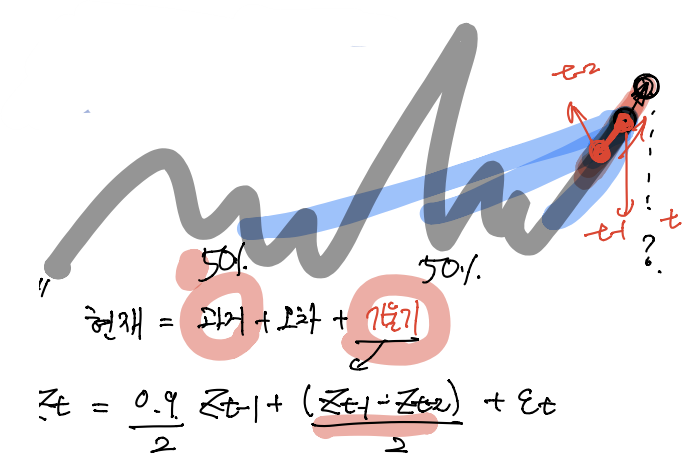 t-2
t-1 t
?
50% 50%
"
현재 = 과거 + 오차 + 기울기
Zt = 0.9/2 Zt-1 + (Zt-1 - Zt-2)/2 + εt